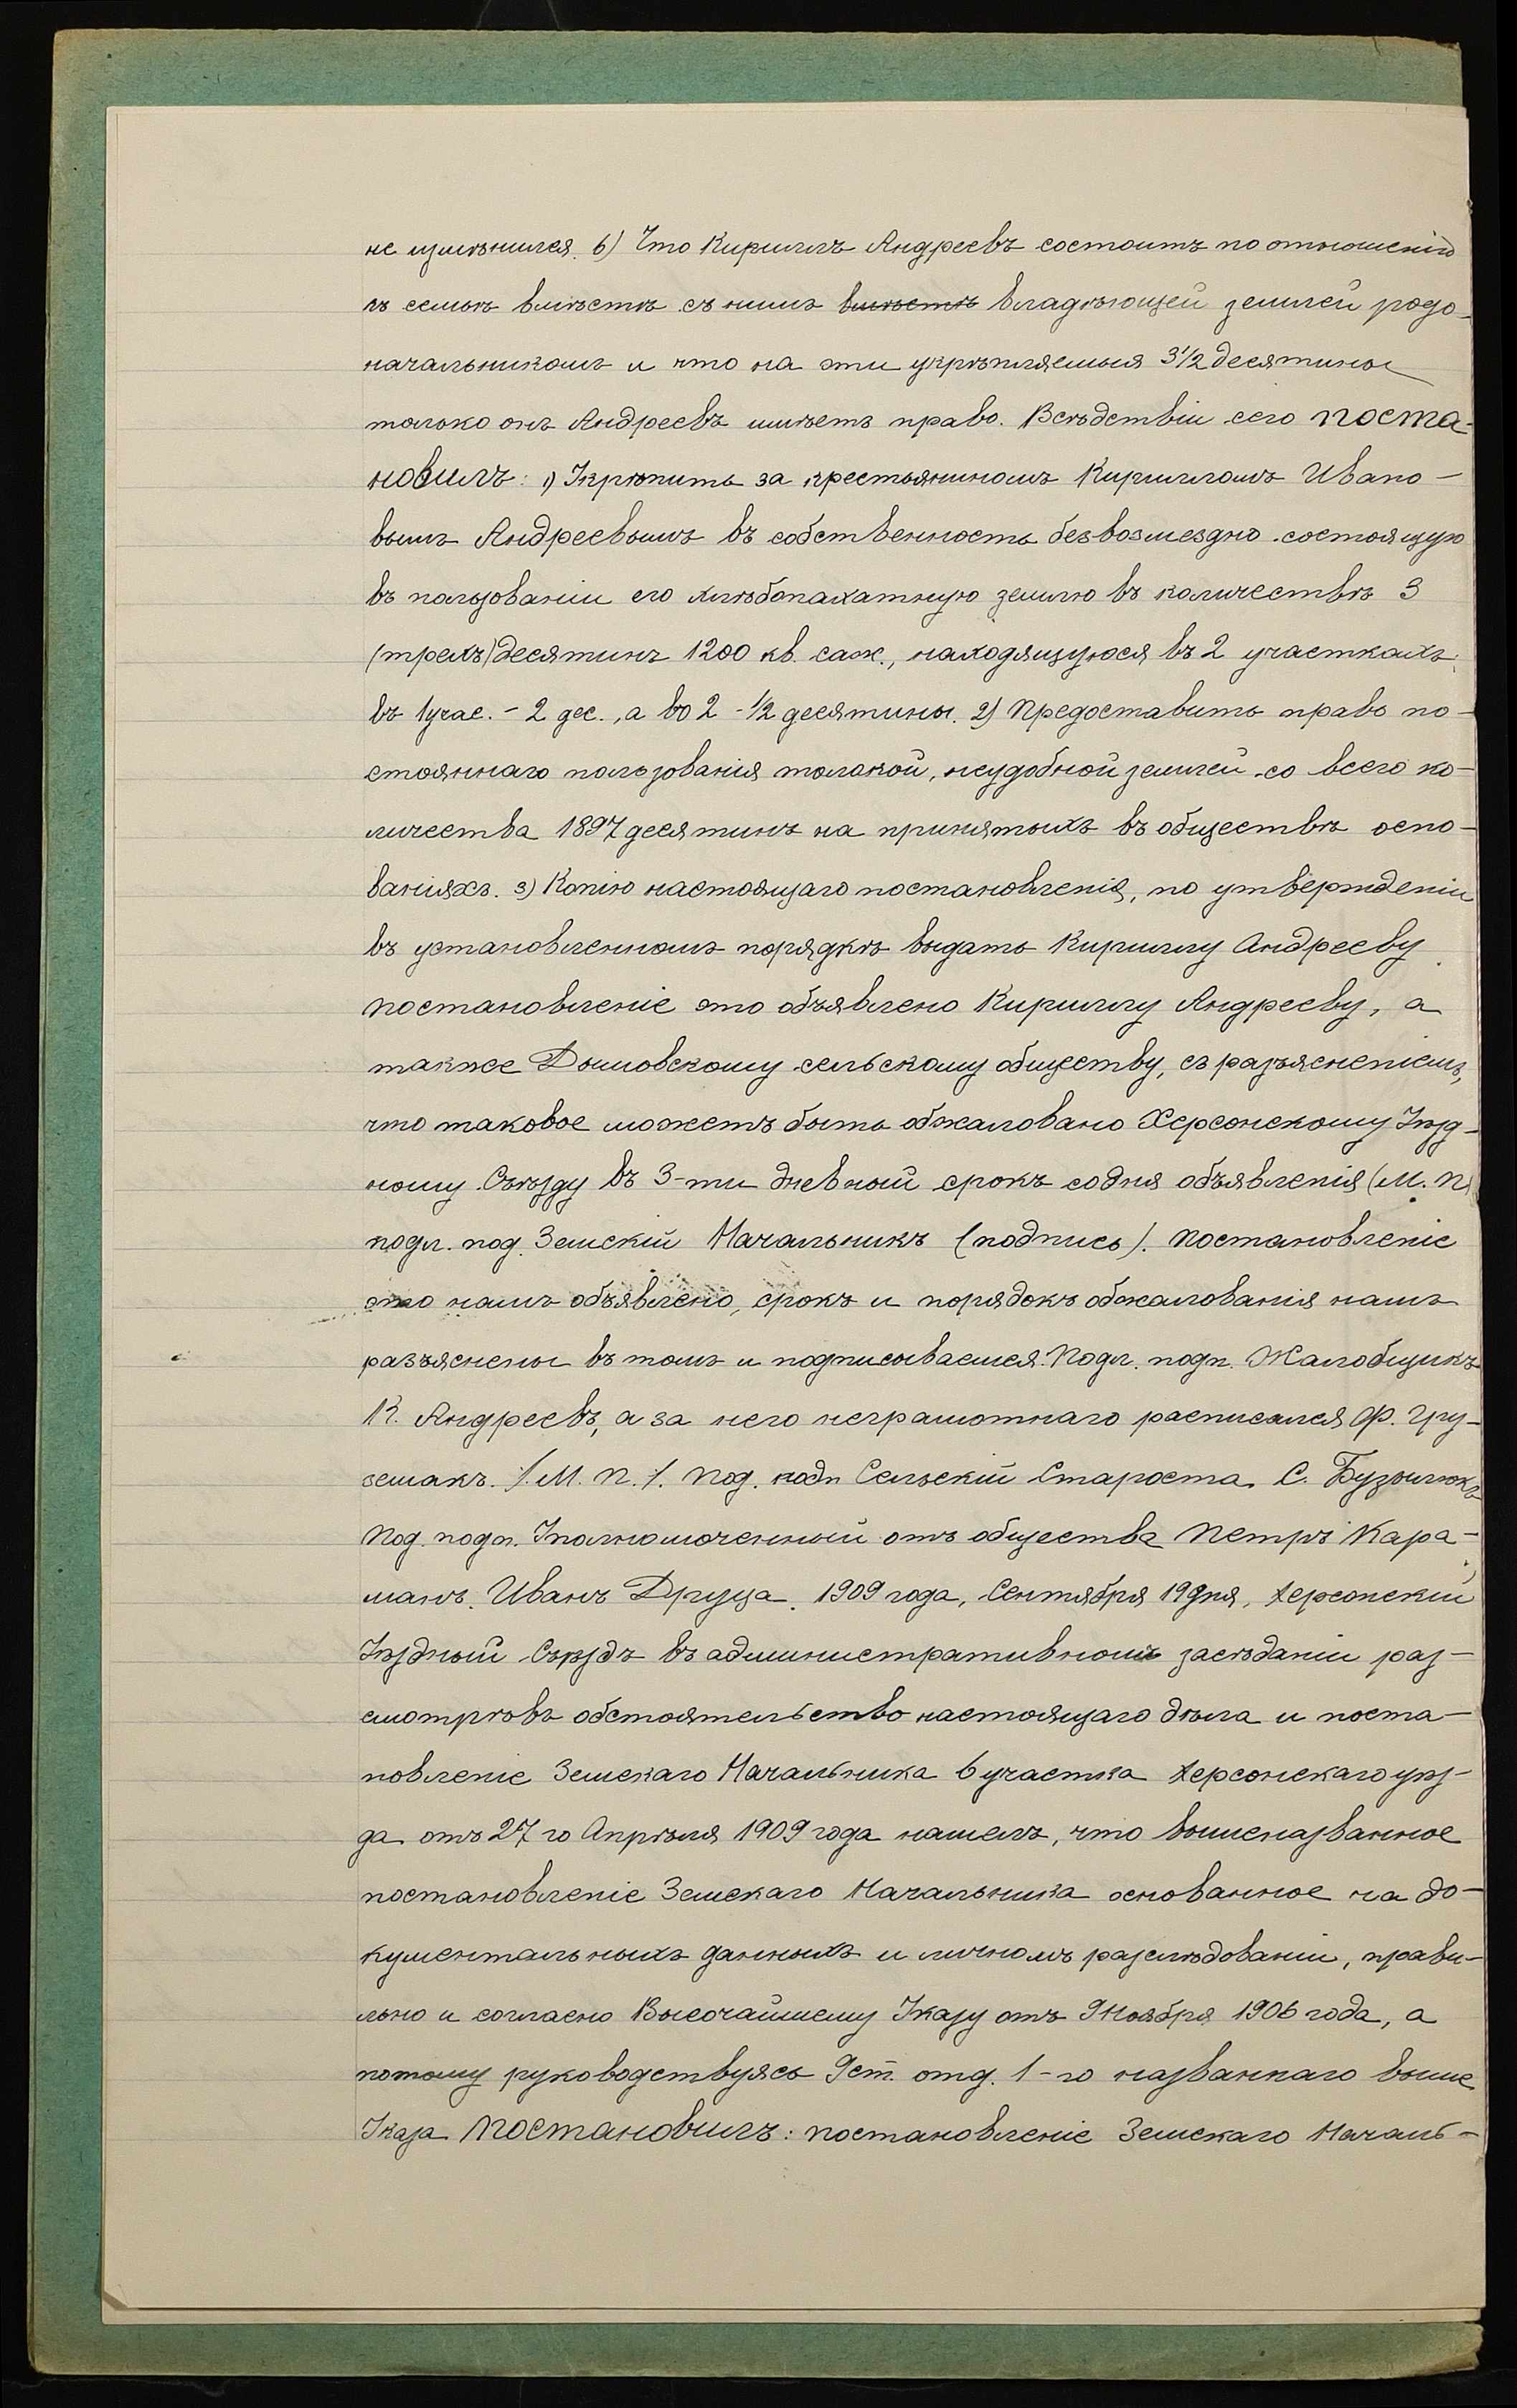 не измѣнился. 6) Что Кириллъ Андреевъ состоитъ по отношенію
къ семьѣ вмѣстѣ съ нимъ вмѣстѣ владѣющей землей родо-
начальникомъ и что на эти укрѣпляемыя 3½ десятины
только онъ Андреевъ имѣетъ право. Вслѣдствіи сего поста-
новилъ: 1) Укрѣпить за крестьяниномъ Кирилломъ Ивано-
вымъ Андреевымъ въ собственность безвозмездно состоящую
въ пользованіи его хлѣбопахатную землю въ количествѣ 3
(трехъ) десятинъ 1200 кв. саж., находящуюся въ 2 участкахъ,
въ 1 учас. - 2 дес., а во 2 - ½ десятины. 2) Предоставить право по-
стояннаго пользованія толокой, неудобной землей со всего ко-
личества 1897 десятинъ на принятыхъ въ обществѣ осно-
ваніяхъ. 3) Копію настоящаго постановленія, по утвержденіи
въ установленномъ порядкѣ выдать Кириллу Андрееву.
Постановленіе это объявлено Кириллу Андрееву, а
также Дымовскому сельскому обществу, съ разъясненіемъ,
что таковое можетъ быть обжаловано Херсонскому Уѣзд-
ному Съѣзду въ 3-ти дневный срокъ со дня объявленія (М. П)
подл. под. Земскій Начальникъ (подпись). Постановленіе
это намъ объявлено, срокъ и порядокъ обжалованія намъ
разъяснены въ томъ и подписываемся. Подл. подп. Жалобщикъ
К. Андреевъ, а за него неграмотнаго расписался Ф. Гру-
земакъ. /. М. П. /. Под. подп Сельскій Староста С. Бузылюкъ
Под. подп. Уполномоченный отъ общества Петръ Кара-
манъ, Иванъ Друца. 1909 года, Сентября 19 дня, Херсонскій
Уѣздный Съѣздъ въ административномъ засѣданіи раз-
смотрѣвъ обстоятельство настоящаго дѣла и поста-
новленіе Земскаго Начальника 6 участка Херсонскаго уѣз-
да отъ 27 го Апрѣля 1909 года нашелъ, что вышеназванное
постановленіе Земскаго Начальника основанное на до-
кументальныхъ данныхъ и личномъ разслѣдованіи, прави-
льно и согласно Высочайшему Указу отъ 9 Ноября 1906 года, а
потому руководствуясь 9 ст. отд. 1-го названнаго выше
Указа постановилъ: постановленіе Земскаго Началь-